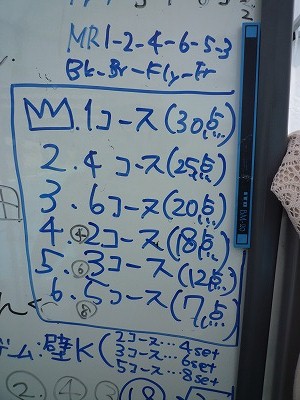 MR1-2-4-6-5-3
Bk-Br-Fly-Fr
.1コース(30点)
2.4コース(25点)
3.6コース(20点)
4.④2コース(18点)
5.⑥3コース(12点)
6.⑧5コース(7点)
ゲーム:壁K(2コース…4set
3コース…6set
5コース…8set
2.④③⑱